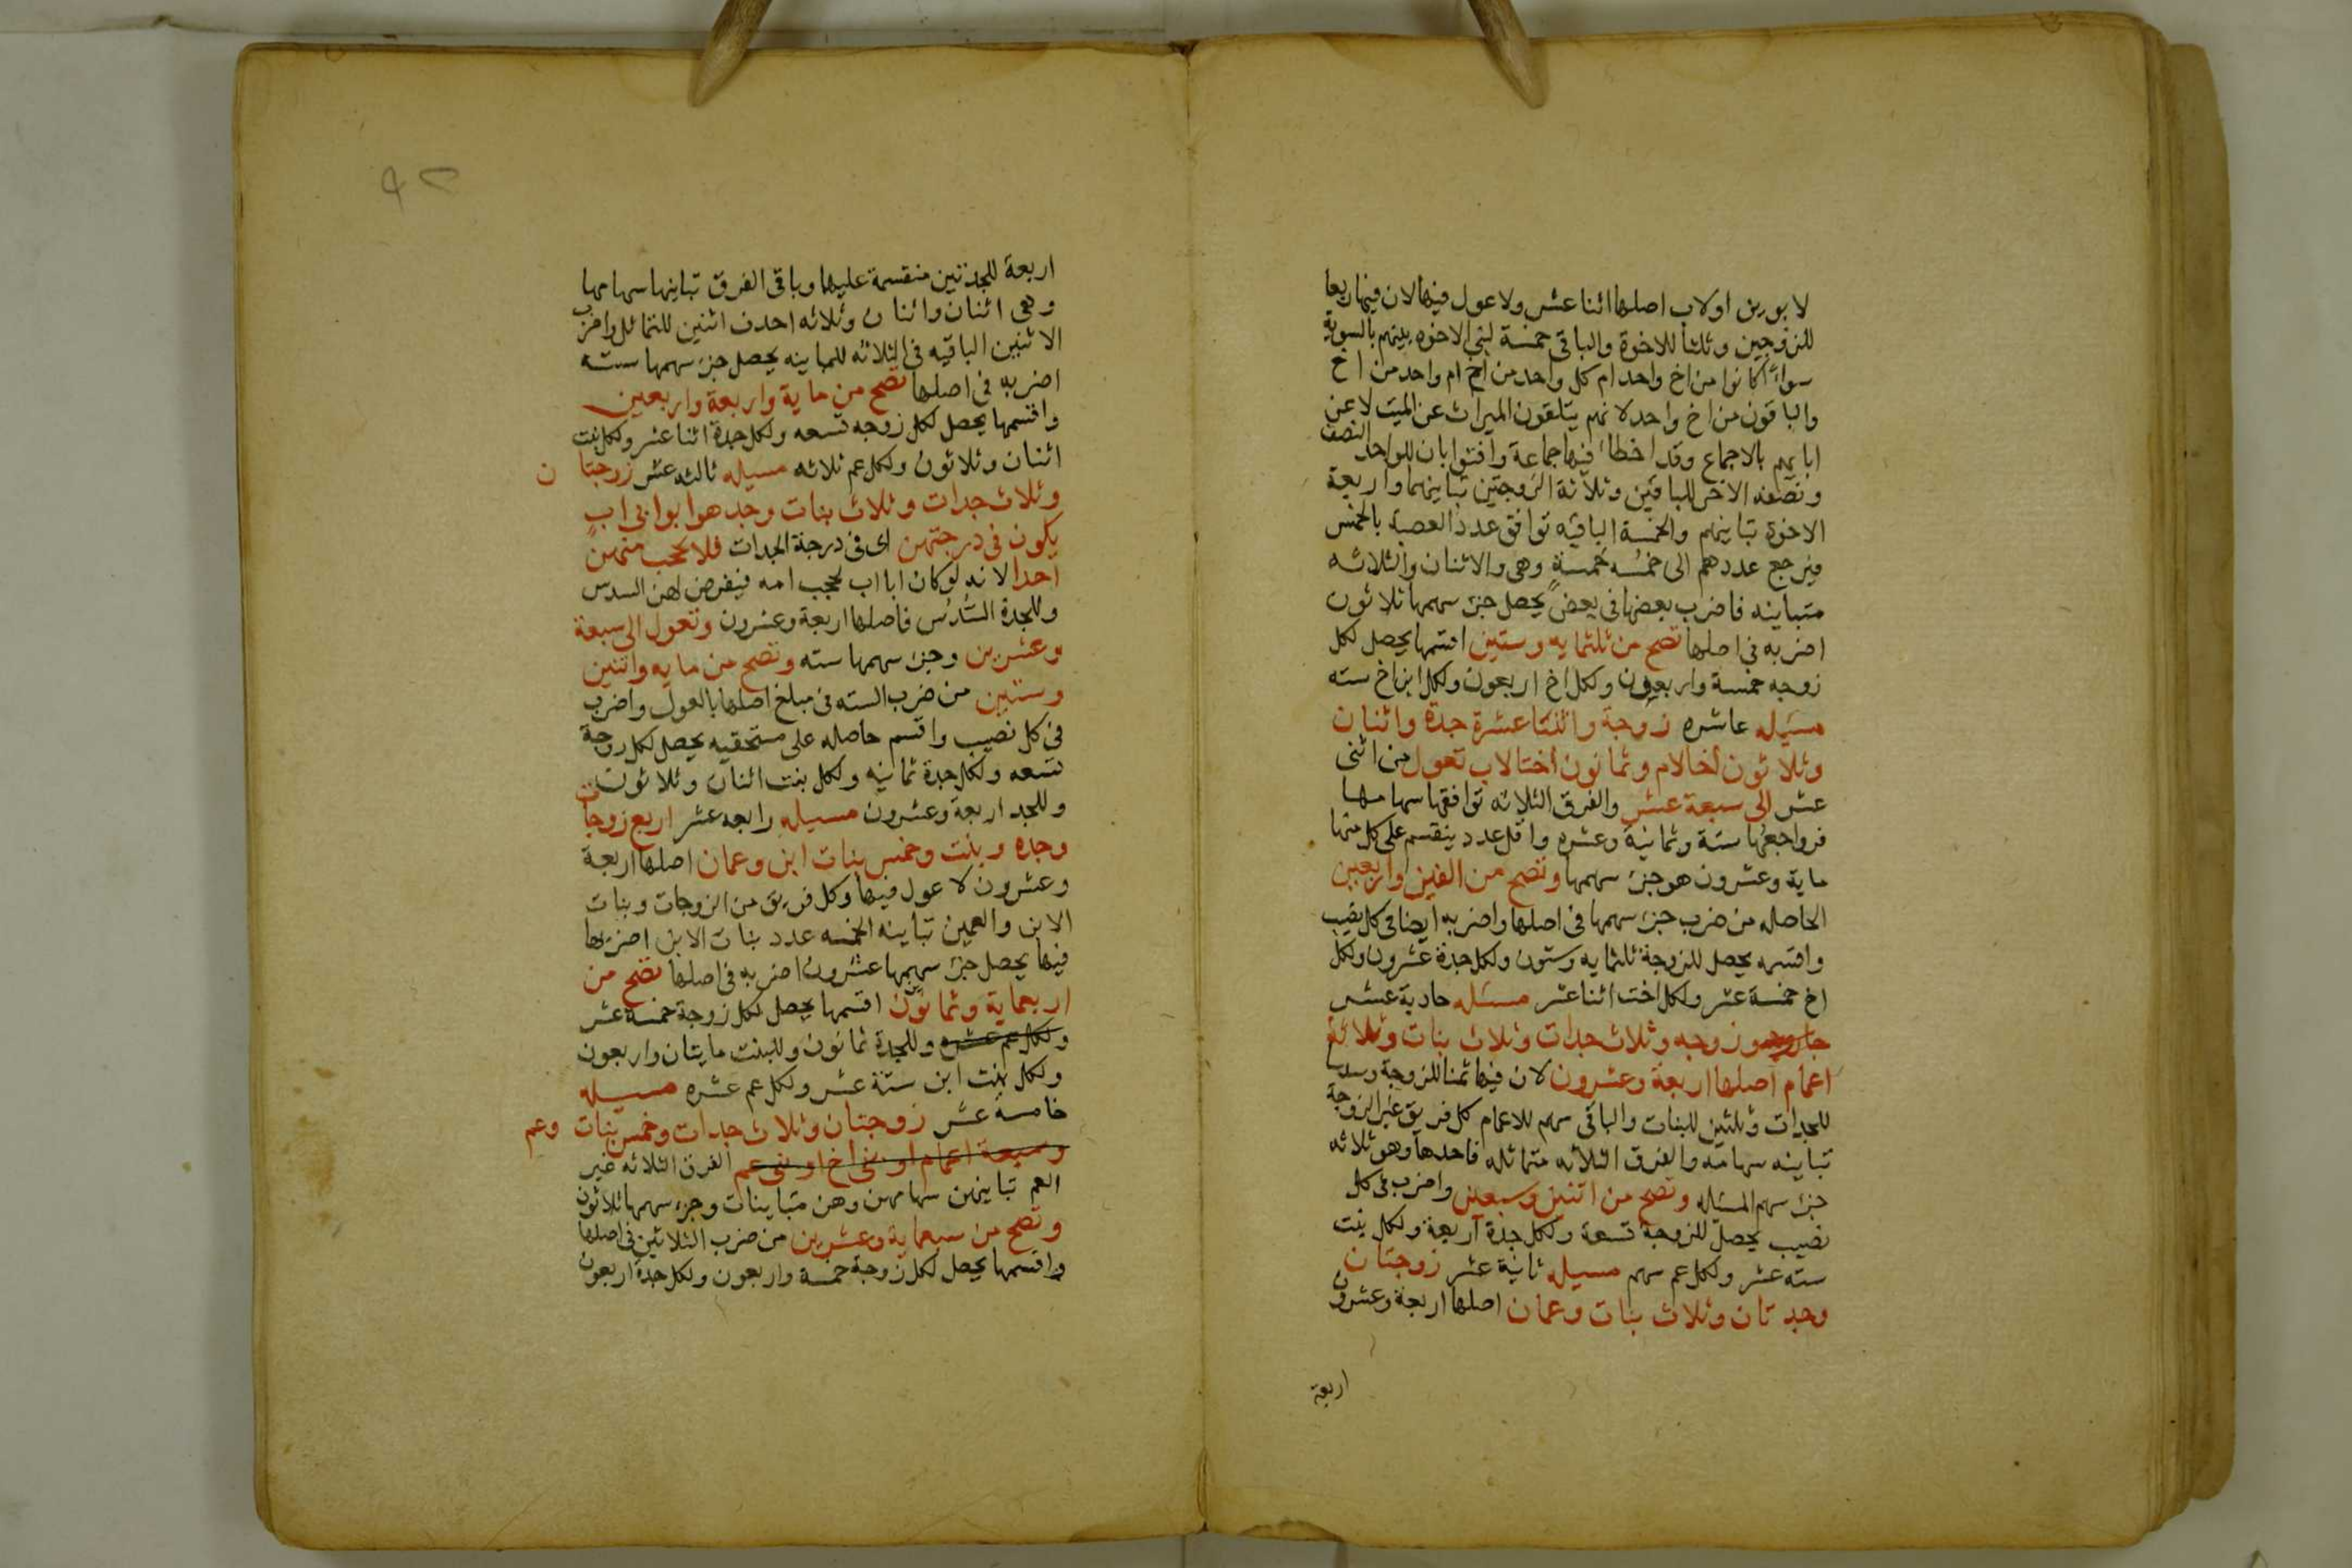 لابورين اولاب اصلها اثنا عشر ولا عول فيها لان فيها ربعا
للزوجين وثلثا للاخوة والباقى خمسة لبنى الاخوه بينهم بالسوية
سواء اكانوا من اخ واحد ام كل واحد من اخ ام واحد من اخ
والباقون من اخ واحد لانهم يتلقون الميراث عن الميت لا عن
ابايهم بالاجماع وقد اخطا فيها جماعة وافتوا بان للواحد النصف
ونصفه الاخر للباقين وثلاثة الزوجتين تباينهما واربعة
الاخوة تباينهم والخمسة الباقيه توافق عدد العصبه بالخمس
فيرجع عددهم الى خمسه خمسة وهى والاثنان والثلاثه
متباينه فاضرب بعضها فى بعض يحصل جزء سهمها ثلاثون
اضربه فى اصلها تصح من ثلثمايه وستين اقسمها يحصل لكل
زوجه خمسة واربعون ولكل اخ اربعون ولكل ابن اخ سته
مسيله عاشره زوجة واثنتا عشرة جدة واثنان
وثلاثون اخا لام وثمانون اختا لاب تعول من اثنى
عشر الى سبعة عشر والفرق الثلاثه توافقها سهامها
فرواجعها ستة وثمانية وعشره واقل عدد ينقسم على كل منها
ماية وعشرون هو جزء سهمها وتصح من الفين واربعين
الحاصله من ضرب جزء سهمها فى اصلها واضربه ايضا فى كل نصيب
واقسمه يحصل للزوجة ثلثمايه وستون ولكل جدة عشرون ولكل
اخ خمسة عشر ولكل اخت اثنا عشر مسئله حادية عشر
زوجه وثلاث جدات وثلاث بنات وثلاثة
اعمام اصلها اربعة وعشرون لان فيها ثمنا للزوجة وسدسا
للجدات وثلثين للبنات والباقى سهم للاعمام كل فريق غير الزوجة
تباينه سهامه والفرق الثلاثه متماثله فاحدها وهو ثلاثه
جزء سهم المسئله وتصح من اثنين وسبعين واضرب فى كل
نصيب يحصل للزوجة تسعة ولكل جدة اربعة ولكل بنت
سته عشر ولكل عم سهم مسيله ثانية عشر زوجتان
وجدتان وثلاث بنات وعمان اصلها اربعة وعشرون
اربعة
٩٢
اربعة للجدتين منقسمة عليها وباقى الفرق تباينها سهامها
وهى اثنان واثنان وثلاثه احذف اثنين للتماثل واضرب
الاثنين الباقيه فى الثلاثه للمباينه يحصل جزء سهمها سته
اضربه فى اصلها تصح من ماية واربعة واربعين
واقسمها يحصل لكل زوجه تسعه ولكل جدة اثنا عشر ولكل بنت
اثنان وثلاثون ولكل عم ثلاثه مسيله ثالثه عشر زوجتان
وثلاث جدات وثلاث بنات وجد هو ابو ابى اب
يكون فى درجتهن اى فى درجة الجدات فلا يحجب منهن
احدا لانه لو كان ابا اب لحجب امه فيفرض لهن السدس
وللجدة السُدُس فاصلها اربعة وعشرون وتعول الى سبعة
وعشرين وجزء سهمها سته وتصح من مايه واثنين
وستين من ضرب السته فى مبلغ اصلها بالعول واضرب
فى كل نصيب واقسم حاصله على مستحقيه يحصل لكل زوجة
تسعه ولكل جدة ثمانيه ولكل بنت اثنان وثلاثون
وللجد اربعة وعشرون مسيله رابعه عشر اربع زوجات
وجده وبنت وخمس بنات ابن وعمان اصلها اربعة
وعشرون لا عول فيها وكل فريق من الزوجات وبنات
الابن والعمين تباينه الخمسه عدد بنات الابن اضربها
فيها يحصل جزء سهمها عشرون اضربه فى اصلها تصح من
اربعماية وثمانون اقسمها يحصل لكل زوجة خمسة عشر
ولكل عم عشره وللجدة ثمانون وللبنت مايتان واربعون
ولكل بنت ابن ستة عشر ولكل عم عشره مسيله
خامسة عشر زوجتان وثلاث جدات وخمس بنات وعم
وسبعة اعمام او بنى اخ او بنى عم الفرق الثلاثه غير
العم تباينهن سهامهن وهن متباينات وجزء سهمها ثلاثون
وتصح من سبعماية وعشرين من ضرب الثلاثين فى اصلها
واقسمها يحصل لكل زوجة خمسة واربعون ولكل جدة اربعون